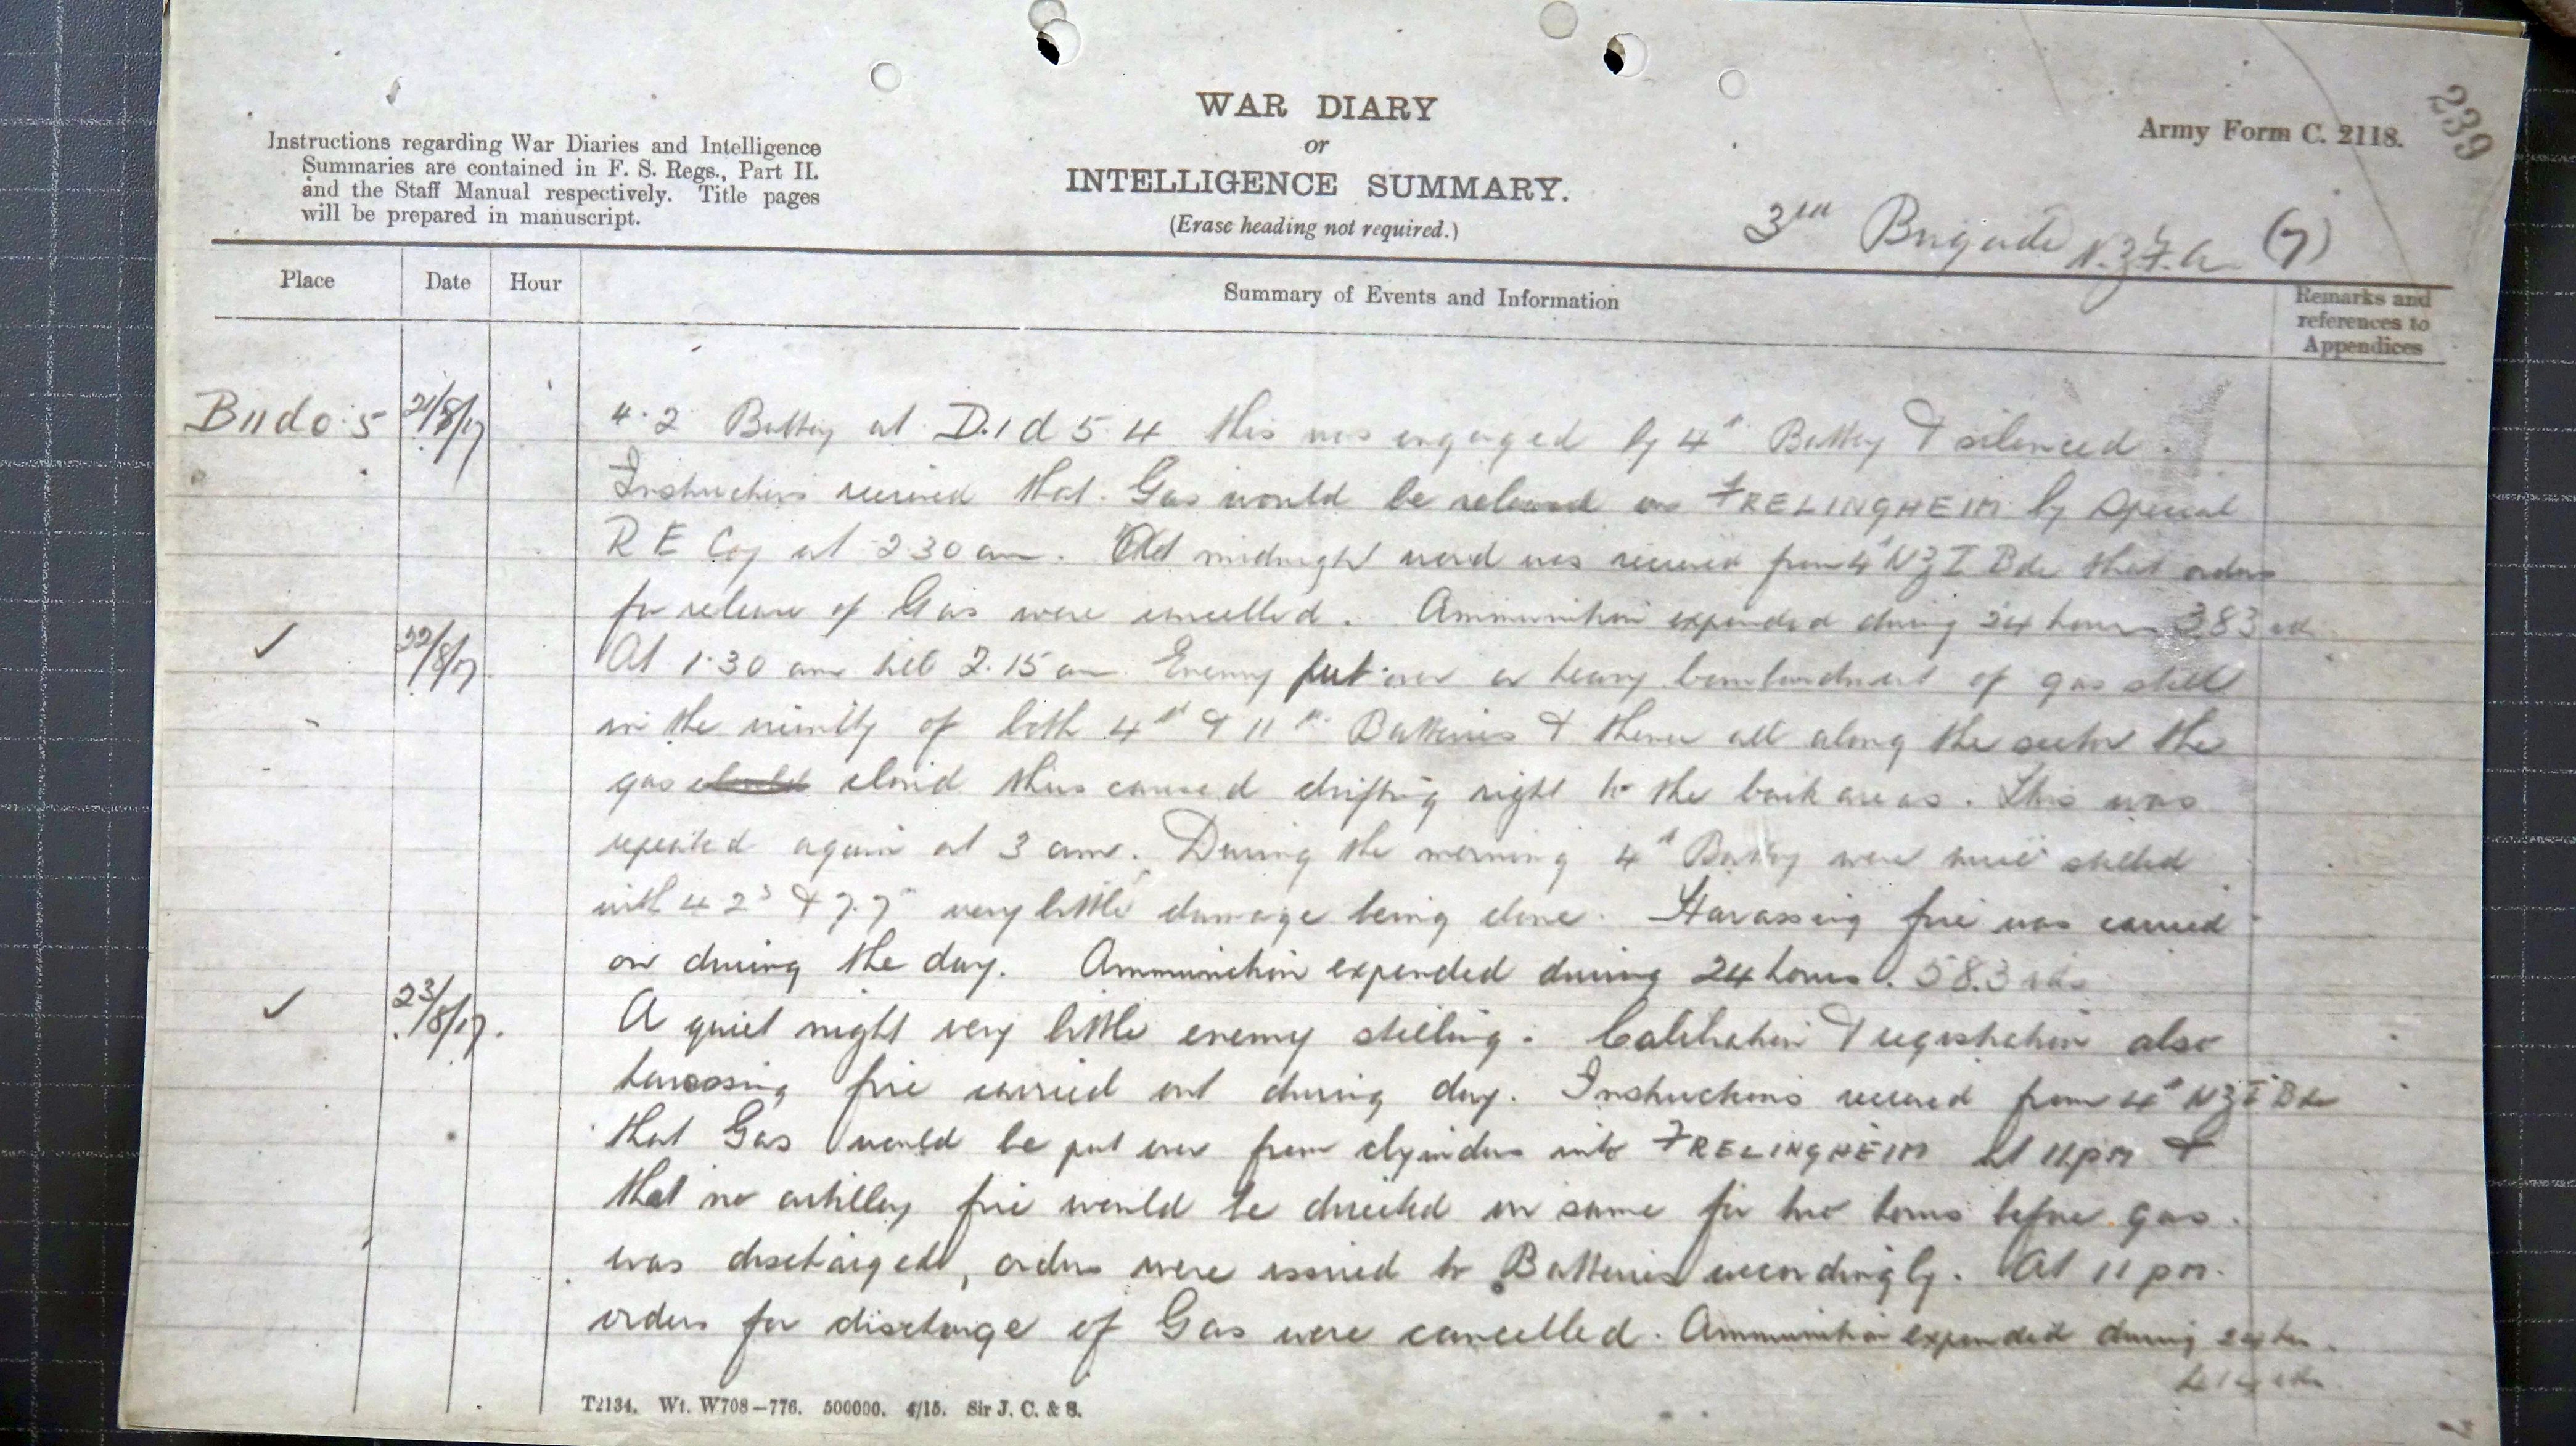 239
WAR DIARY
or
INTELLIGENCE SUMMARY.
(Erase heading not required.)
Army Form C. 2118.
Instructions regarding War Diaries and Intelligence
Summaries are contained in F. S. Regs., Part II.
and the Staff Manual respectively. Title pages
will be prepared in manuscript.
3rd Brigade N.Z.F.A. (7)
Place Date Hour Summary of Events and Information Remarks and references to Appendices
B11d0.5 21/8/17 4.2 Battery at D.1d 5.4 this was engaged by 4th Battery & silenced.
Instructions received that Gas would be released on FRELINGHEIM by Special
R E Coy at 2 30 am. At midnight word was received from 4th NZI Bde that orders
for release of Gas were cancelled. Ammunition expended during 24 hours 383 rds
✓ 22/8/17 At 1.30 am till 2.15 am Enemy put over a heavy bombardment of gas shell
in the vicinity of both 4th & 11th Batteries & thence all along the sector the
gas cloud thus caused drifting right to the back areas. This was
repeated again at 3 am. During the morning 4th Battery were shelled
with 4 2s & 7.7s very little damage being done. Harassing fire was carried
on during the day. Ammunition expended during 24 hours. 583 rds
✓ 23/8/17. A quiet night very little enemy shelling. Calibration & registration also
harassing fire carried out during day. Instructions received from 4th NZI Bde
that Gas would be put over from clyinders into FRELINGHEIM at 11 pm &
that no artillery fire would be directed on same for two hours before gas
was discharged, orders were issued to Batteries accordingly. At 11 pm.
orders for discharge of Gas were cancelled. Ammunition expended during 24 hrs.
rds
T2134. Wt. W708—776. 500000. 4/15. Sir J. C. & S.